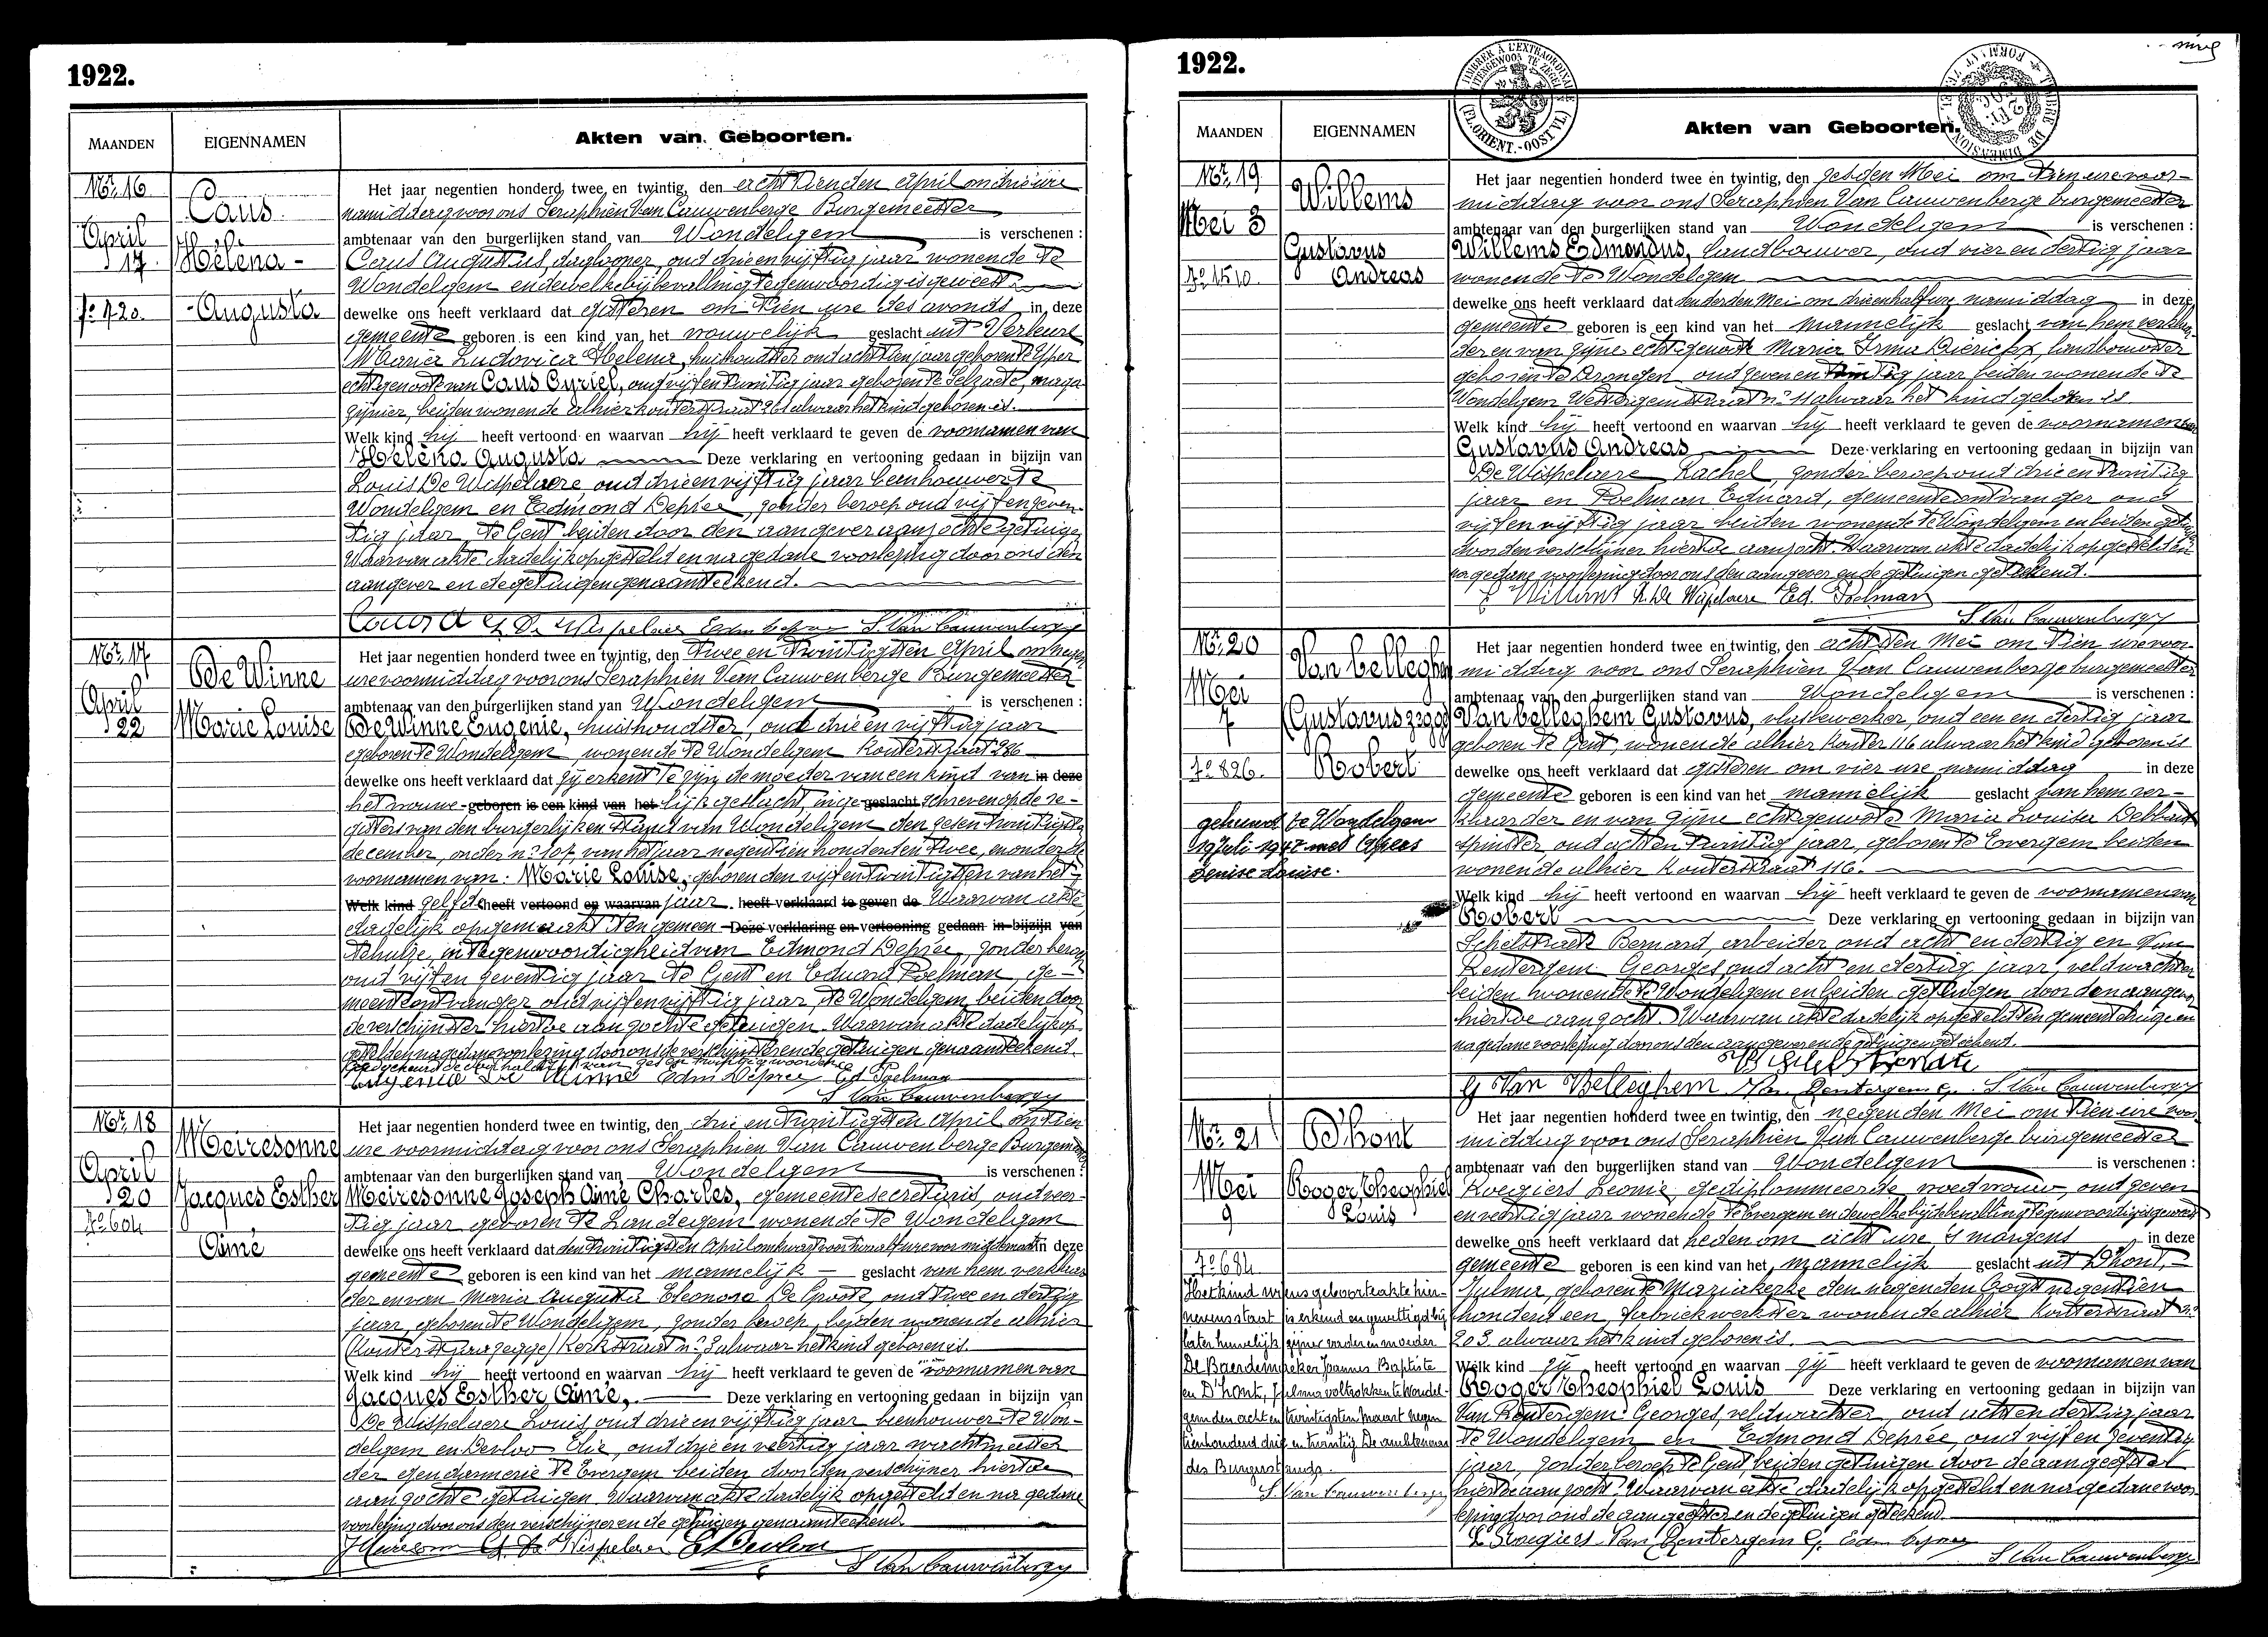 1922.
MAANDEN
EIGENNAMEN
Akten van Geboorten.
Nr. 16
April
17
Caus
Helena -
- Augusta
Het jaar negentien honderd twee en twintig, den achttienden April om drie ure
namiddag voor ons Seraphien Van Cauwenberge Burgemeester
ambtenaar van den burgerlijken stand van Wondelgem is verschenen :
Caus Augustus, daglooner, oud drie en vijftig jaar wonende te
Wondelgem en dewelke bij bevalling tegenwoordig is geweest
dewelke ons heeft verklaard dat gisteren om tien ure des avonds in deze
gemeente geboren is een kind van het vrouwelijk geslacht uit Verleure
Maria Ludovica Helena, huishoudster oud achttien jaar geboren te Yper
echtgenoote van Caus Cyriel, oud vijf en twintig jaar geboren te Selzaete, maga-
zijnier, beiden wonende alhier kouterstraat 261 alwaar het kind geboren is.
Welk kind hij heeft vertoond en waarvan hij heeft verklaard te geven de voornamen van
Helena Augusta Deze verklaring en vertooning gedaan in bijzijn van
Louis De Wispelaere oud drie en vijftig jaar beenhouwer te
Wondelgem en Edmond Deprée, zonder beroep oud vijf en zeven-
tig jaar, te Gent, beiden door den aangever aanzochte getuigen
Waarvan akte dadelijk opgesteld en na gedane voorlezing door ons den
aangever en de getuigen genaamteekend.
S. Van Cauwenberge
Nr. 17
April
22
De Winne
Marie Louise
Het jaar negentien honderd twee en twintig, den twee en twintigsten April om negen
ure voormiddag voor ons Seraphien Van Cauwenberge Burgemeester
ambtenaar van den burgerlijken stand van Wondelgem is verschenen :
De Winne Eugenie, huishoudster, oud drie en vijftig jaar
geboren te Wondelgem, wonende te Wondelgem Kouterstraat 286
dewelke ons heeft verklaard dat zij erkent te zijn de moeder van een kind van in deze
het vrouwe- geboren is een kind van het lijk geslacht, inge- geslacht schreven op de re-
gisters van den burgerlijken stand van Wondelgem den zesen twintigsten
december, onder n° 107, van het jaar negentien honderd en twee, en onder de
voornamen van : Marie Louise, geboren den vijfentwintigsten van het-
Welk kind zelfde heeft vertoond en waarvan jaar. heeft verklaard te geven de Waarvan akte
dadelijk opgemaakt ten gemeen- Deze verklaring en vertooning gedaan in bijzijn van
tehuize, in tegenwoordigheid van Edmond Deprée, zonder beroep
oud vijf en zeventig jaar te Gent en Eduard Poelman, ge-
meenteontvanger oud vijf en vijftig jaar, te Wondelgem, beiden door
de verschijnster hiertoe aangezochte getuigen. Waarvan akte dadelijk op-
gesteld en na gedane voorlezing door ons de verschijnster en de getuigen genaamteekend.
Eugenie De Winne Edm Deprée Ed Poelman
S. Van Cauwenberge
Nr. 18
April
20
N° 604
Meiresonne
Jacques Esther
Aimé
Het jaar negentien honderd twee en twintig, den drie en twintigsten April om tien
ure voormiddag voor ons Seraphien Van Cauwenberge Burgemeester
ambtenaar van den burgerlijken stand van Wondelgem is verschenen :
Meiresonne Joseph Aimé Charles, gemeentesecretaris, oud veer-
tig jaar geboren te Landegem wonende te Wondelgem
dewelke ons heeft verklaard dat den twintigsten April om kwart voor in deze
gemeente geboren is een kind van het mannelijk geslacht van hem verklaar-
der en van Maria Augusta Eleonora De Groote, oud twee en dertig
jaar, geboren te Wondelgem, zonder beroep, beiden wonende alhier
Kerkstraat n° 3 alwaar het kind geboren is.
Welk kind hij heeft vertoond en waarvan hij heeft verklaard te geven de voornamen van
Jacques Esther Aimé, Deze verklaring en vertooning gedaan in bijzijn van
De Wispelaere Louis, oud drie en vijftig jaar beenhouwer te Won-
delgem en Devloo Elie, oud drie en veertig jaar wachtmeester
der gendarmerie te Evergem beiden door den verschijner hiertoe
aangezochte getuigen. Waarvan akte dadelijk opgesteld en na gedane
voorlezing door ons den verschijner en de getuigen genaamteekend.
S. Van Cauwenberge
1922.
MAANDEN
EIGENNAMEN
Akten van Geboorten.
Nr. 19
Mei 3
N° 1510.
Willems
Gustavus
Andreas
Het jaar negentien honderd twee en twintig, den zesden Mei om tien ure voor-
middag voor ons Seraphien Van Cauwenberge burgemeester
ambtenaar van den burgerlijken stand van Wondelgem is verschenen :
Willems Edmondus, landbouwer, oud vier en dertig jaar
wonende te Wondelgem
dewelke ons heeft verklaard dat den derden Mei om drie en half ure namiddag in deze
gemeente geboren is een kind van het mannelijk geslacht van hem verklaar-
der en van zijne echtgenoote Maria Irma Dierickx, landbouwster
geboren te Drongen oud zeven en twintig jaar beiden wonende te
Wondelgem n° 11 alwaar het kind geboren is.
Welk kind hij heeft vertoond en waarvan hij heeft verklaard te geven de voornamen van
Gustavus Andreas Deze verklaring en vertooning gedaan in bijzijn van
De Wispelaere Rachel, zonder beroep oud drie en twintig
jaar en Poelman Eduard, gemeenteontvanger oud
vijf en vijftig jaar beiden wonende te Wondelgem en beiden getuigen
door den verschijner hiertoe aanzocht. Waarvan akte dadelijk opgesteld en
na gedane voorlezing door ons den aangever en de getuigen geteekend.
E Willems R. De Wispelaere Ed. Poelman
S. Van Cauwenberge
Nr. 20
Mei
7
N° 826.
Van belleghem
Gustavus
Robert
gehuwd te Wondelgem
19 Juli 1947 met
Denise Louise.
Het jaar negentien honderd twee en twintig, den achtsten Mei om tien ure voor-
middag voor ons Seraphien Van Cauwenberge burgemeester
ambtenaar van den burgerlijken stand van Wondelgem is verschenen :
Van belleghem Gustavus, vlasbewerker, oud een en dertig jaar
geboren te Gent, wonende alhier Kouter 116 alwaar het kind geboren is
dewelke ons heeft verklaard dat gisteren om vier ure namiddag in deze
gemeente geboren is een kind van het mannelijk geslacht van hem ver-
klaarder en van zijne echtgenoote Maria Louisa Debbaut
spinster oud acht en twintig jaar, geboren te Evergem beiden
wonende alhier Kouterstraat 116.
Welk kind hij heeft vertoond en waarvan hij heeft verklaard te geven de voornamen van
Robert Deze verklaring en vertooning gedaan in bijzijn van
Schelstraete Bernard, arbeider oud acht en dertig en Van
Rentergem Georges, oud acht en dertig jaar, veldwachter
beiden wonende te Wondelgem en beiden getuigen door den aangever
hiertoe aangezocht. Waarvan akte dadelijk opgesteld ten gemeentehuize en
na gedane voorlezing door ons den aangever en de getuigen geteekend.
G Van Belleghem Van Rentergem G. S. Van Cauwenberge
Nr. 21
Mei
9
N° 684
D'hont
Roger Theophiel
Louis
Het kind wiens geboorteakte hier-
nevens staat is erkend en gewettigd bij
later huwelijk zijner vader en moeder
De Baerdemaeker Joannes Baptiste
en D'hont, Julma voltrokken te Wondel-
gem den acht en twintigsten Maart negen
tienhonderd drie en twintig De ambtenaar
des Burgerstands.
S. Van Cauwenberge
Het jaar negentien honderd twee en twintig, den negenden Mei om tien ure voor
middag voor ons Seraphien Van Cauwenberge burgemeester
ambtenaar van den burgerlijken stand van Wondelgem is verschenen :
Roegiers Leonie, gediplommeerde vroedvrouw, oud zeven
en veertig jaar wonende te Evergem en dewelke bij de bevalling tegenwoordig is geweest
dewelke ons heeft verklaard dat heden om acht ure 's morgens in deze
gemeente geboren is een kind van het mannelijk geslacht uit D'hont,
Julma, geboren te Mariakerke den negenden Oogst negentien
honderd een, fabriekwerkster wonende alhier Kouterstraat n°
203 alwaar het kind geboren is.
Welk kind zij heeft vertoond en waarvan zij heeft verklaard te geven de voornamen van
Roger Theophiel Louis Deze verklaring en vertooning gedaan in bijzijn van
Van Rentergem Georges, veldwachter, oud acht en dertig jaar
te Wondelgem en Edmond Deprée, oud vijf en zeventig
jaar, zonder beroep te Gent beiden getuigen door de aangeefster
hiertoe aangezocht. Waarvan akte dadelijk opgesteld en na gedane voor-
lezing door ons de aangeefster en de getuigen geteekend.
L Roegiers Van Rentergem G. Edm Deprée
S. Van Cauwenberge